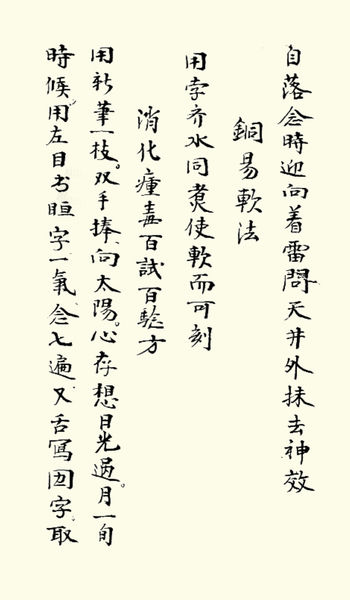 自落念時迎向着雷問天井外抹去神效
銅易軟法
用孛齐水同煮使軟而可刻
消化瘇毒百試百驗方
用新筆一枝。双手捧向太陽。心存想日光過。月一旬
時候。用左目書眶字一氣念七遍又舌寫囬字。取